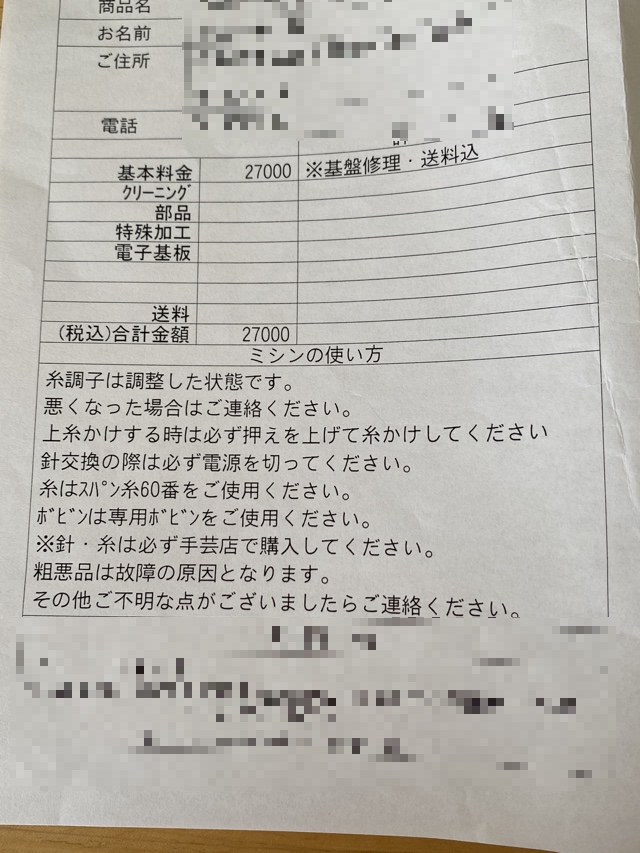 商品名
お名前
ご住所
電話
基本料金 27000 ※基盤修理・送料込
ｸﾘｰﾆﾝｸﾞ
部品
特殊加工
電子基板
送料
(税込)合計金額 27000
ミシンの使い方
糸調子は調整した状態です。
悪くなった場合はご連絡ください。
上糸かけする時は必ず押えを上げて糸かけしてください
針交換の際は必ず電源を切ってください。
糸はｽﾊﾟﾝ糸60番をご使用ください。
ﾎﾞﾋﾞﾝは専用ﾎﾞﾋﾞﾝをご使用ください。
※針・糸は必ず手芸店で購入してください。
粗悪品は故障の原因となります。
その他ご不明な点がございましたらご連絡ください。